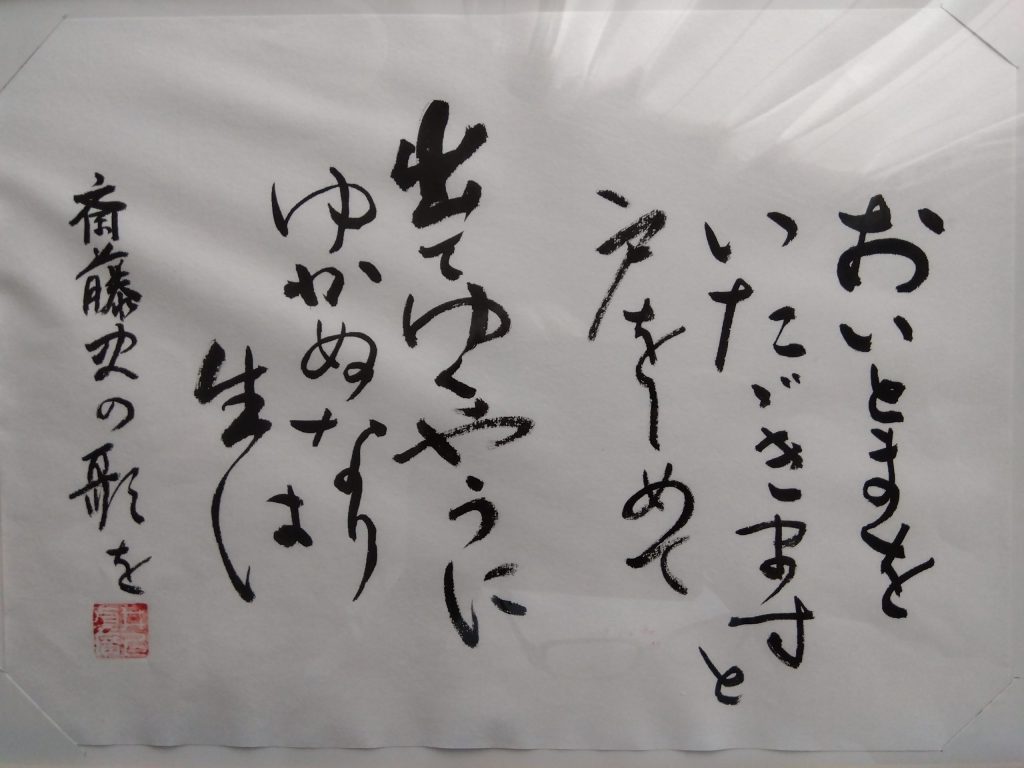 おいとまを
いたゞきますと
戸をしめて
出てゆくやうに
ゆかぬなり
生は
斎藤史の歌を